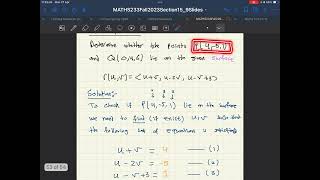 MATH5233Fall2023Section15_9Slides
Determine whether the points P(4,-5,1)
and Q(0,4,6) lie on the given surface
r(u,v) = <u+v, u-2v, u-v+3>
Solution:
To check if P(4,-5,1) lie on the surface
we need to find (if exist) u,v such that
the following set of equations is satisfied
u + v = 4 — (1)
u - 2v = -5 — (2)
u - v + 3 = 1 — (3)
53 of 54